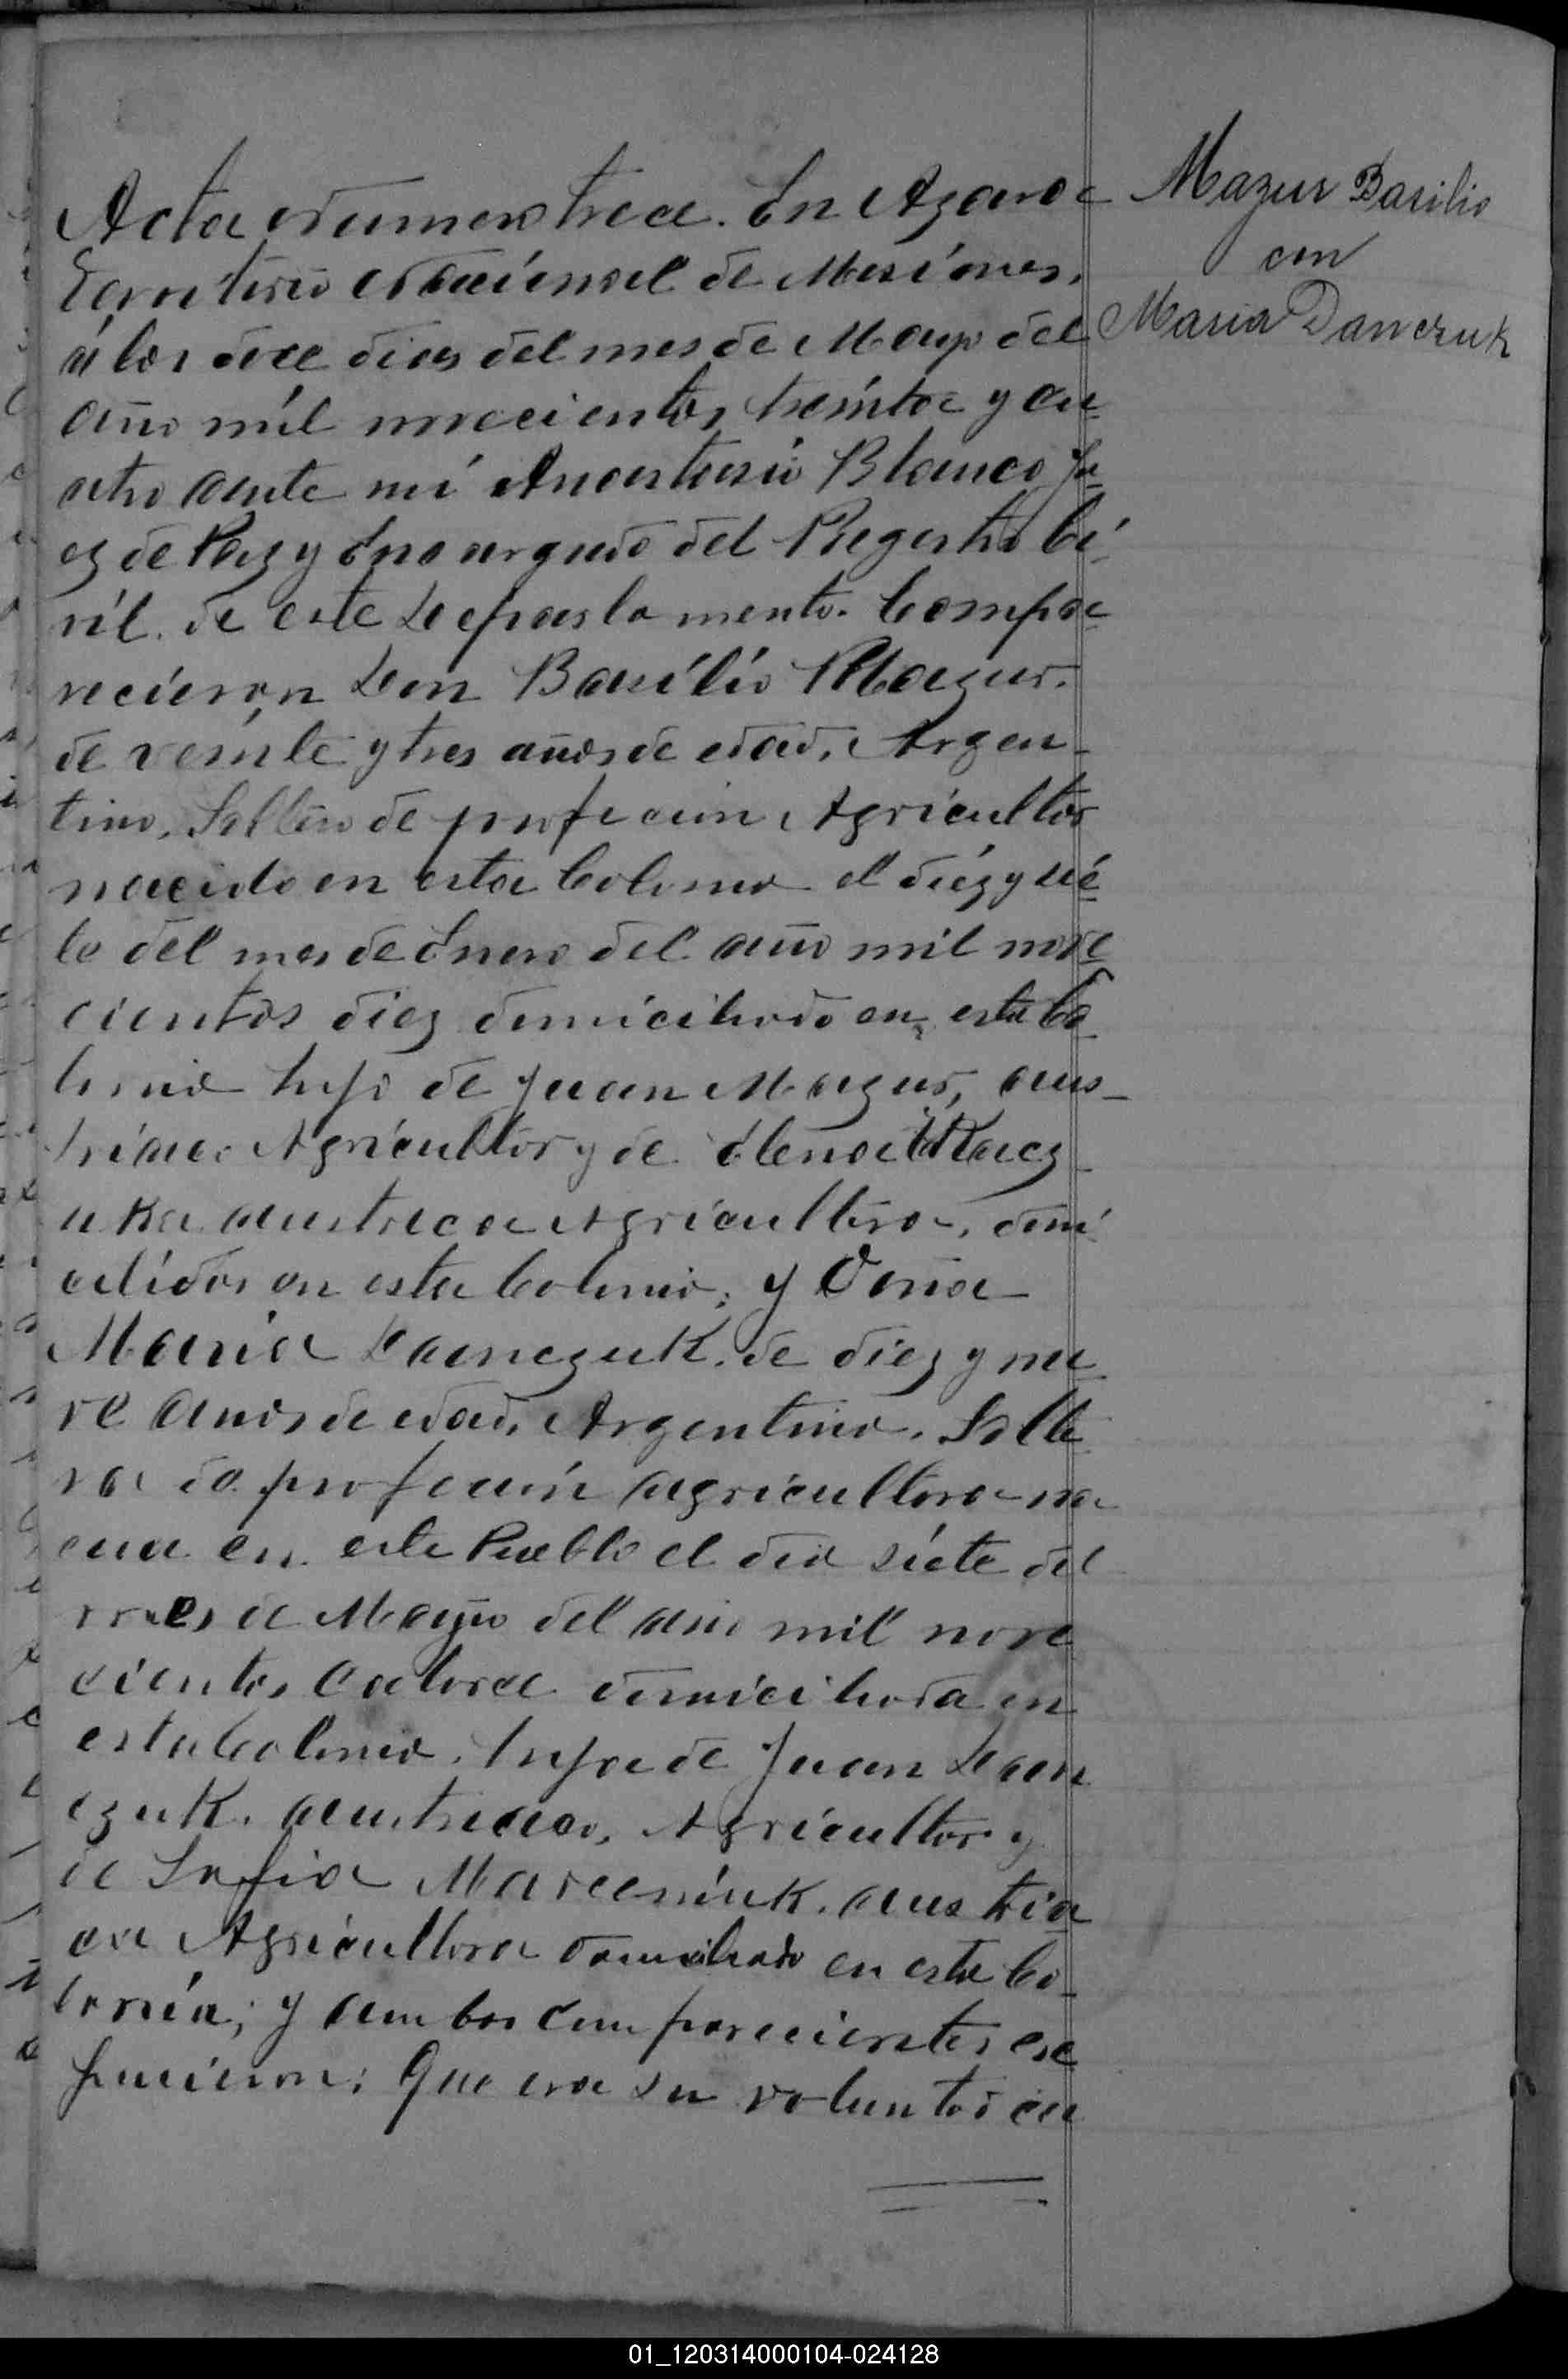 Acta Numero trece. En Azara
Territorio Nacional de Misiones,
á los doce dias del mes de Mayo del
año mil novecientos treinta y cu-
atro ante mi Anastasio Blanco Ju-
ez de Paz y Encargado del Registro Ci-
vil. de este Departamento. Compa-
recieron Don Basilio Mazur.
de veinte y tres años de edad, Argen-
tino, Soltero de profecion Agricultor
nacido en esta Colonia el diez y sié-
te del mes de Enero del año mil nove
cientos diez domiciliado en esta Co-
lonia hijo de Juan Mazur, aus-
triaco Agricultor y de Elena
uka austreca Agricultora, domi
cilidos en esta Colonia; y Doña
Maria Danczuk. de diez y nue
ve anos de edad, Argentina. Solte
ra de profecion agricultora na
cida en este Pueblo el dia siete del
mes de Mayo del año mil nove
cientos catorce domiciliada en
esta Colonia. hija de Juan Dan
czuk. austriaco, Agricultor y
de Sofia Marceniuk. austria
ca Agricultora domiciliado en esta Co-
lonia; y ambos comparecientes
Que era su voluntad
Mazur Basilio
con
Maria Danczuk
01_120314000104-024128